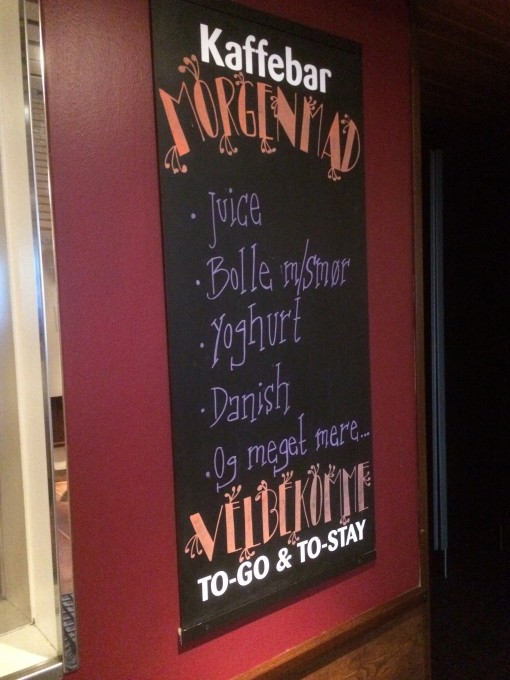 Kaffebar
MORGENMAD
· Juice
· Bolle m/smør
· Yoghurt
· Danish
· Og meget mere...
VELBEKOMME
TO-GO & TO-STAY